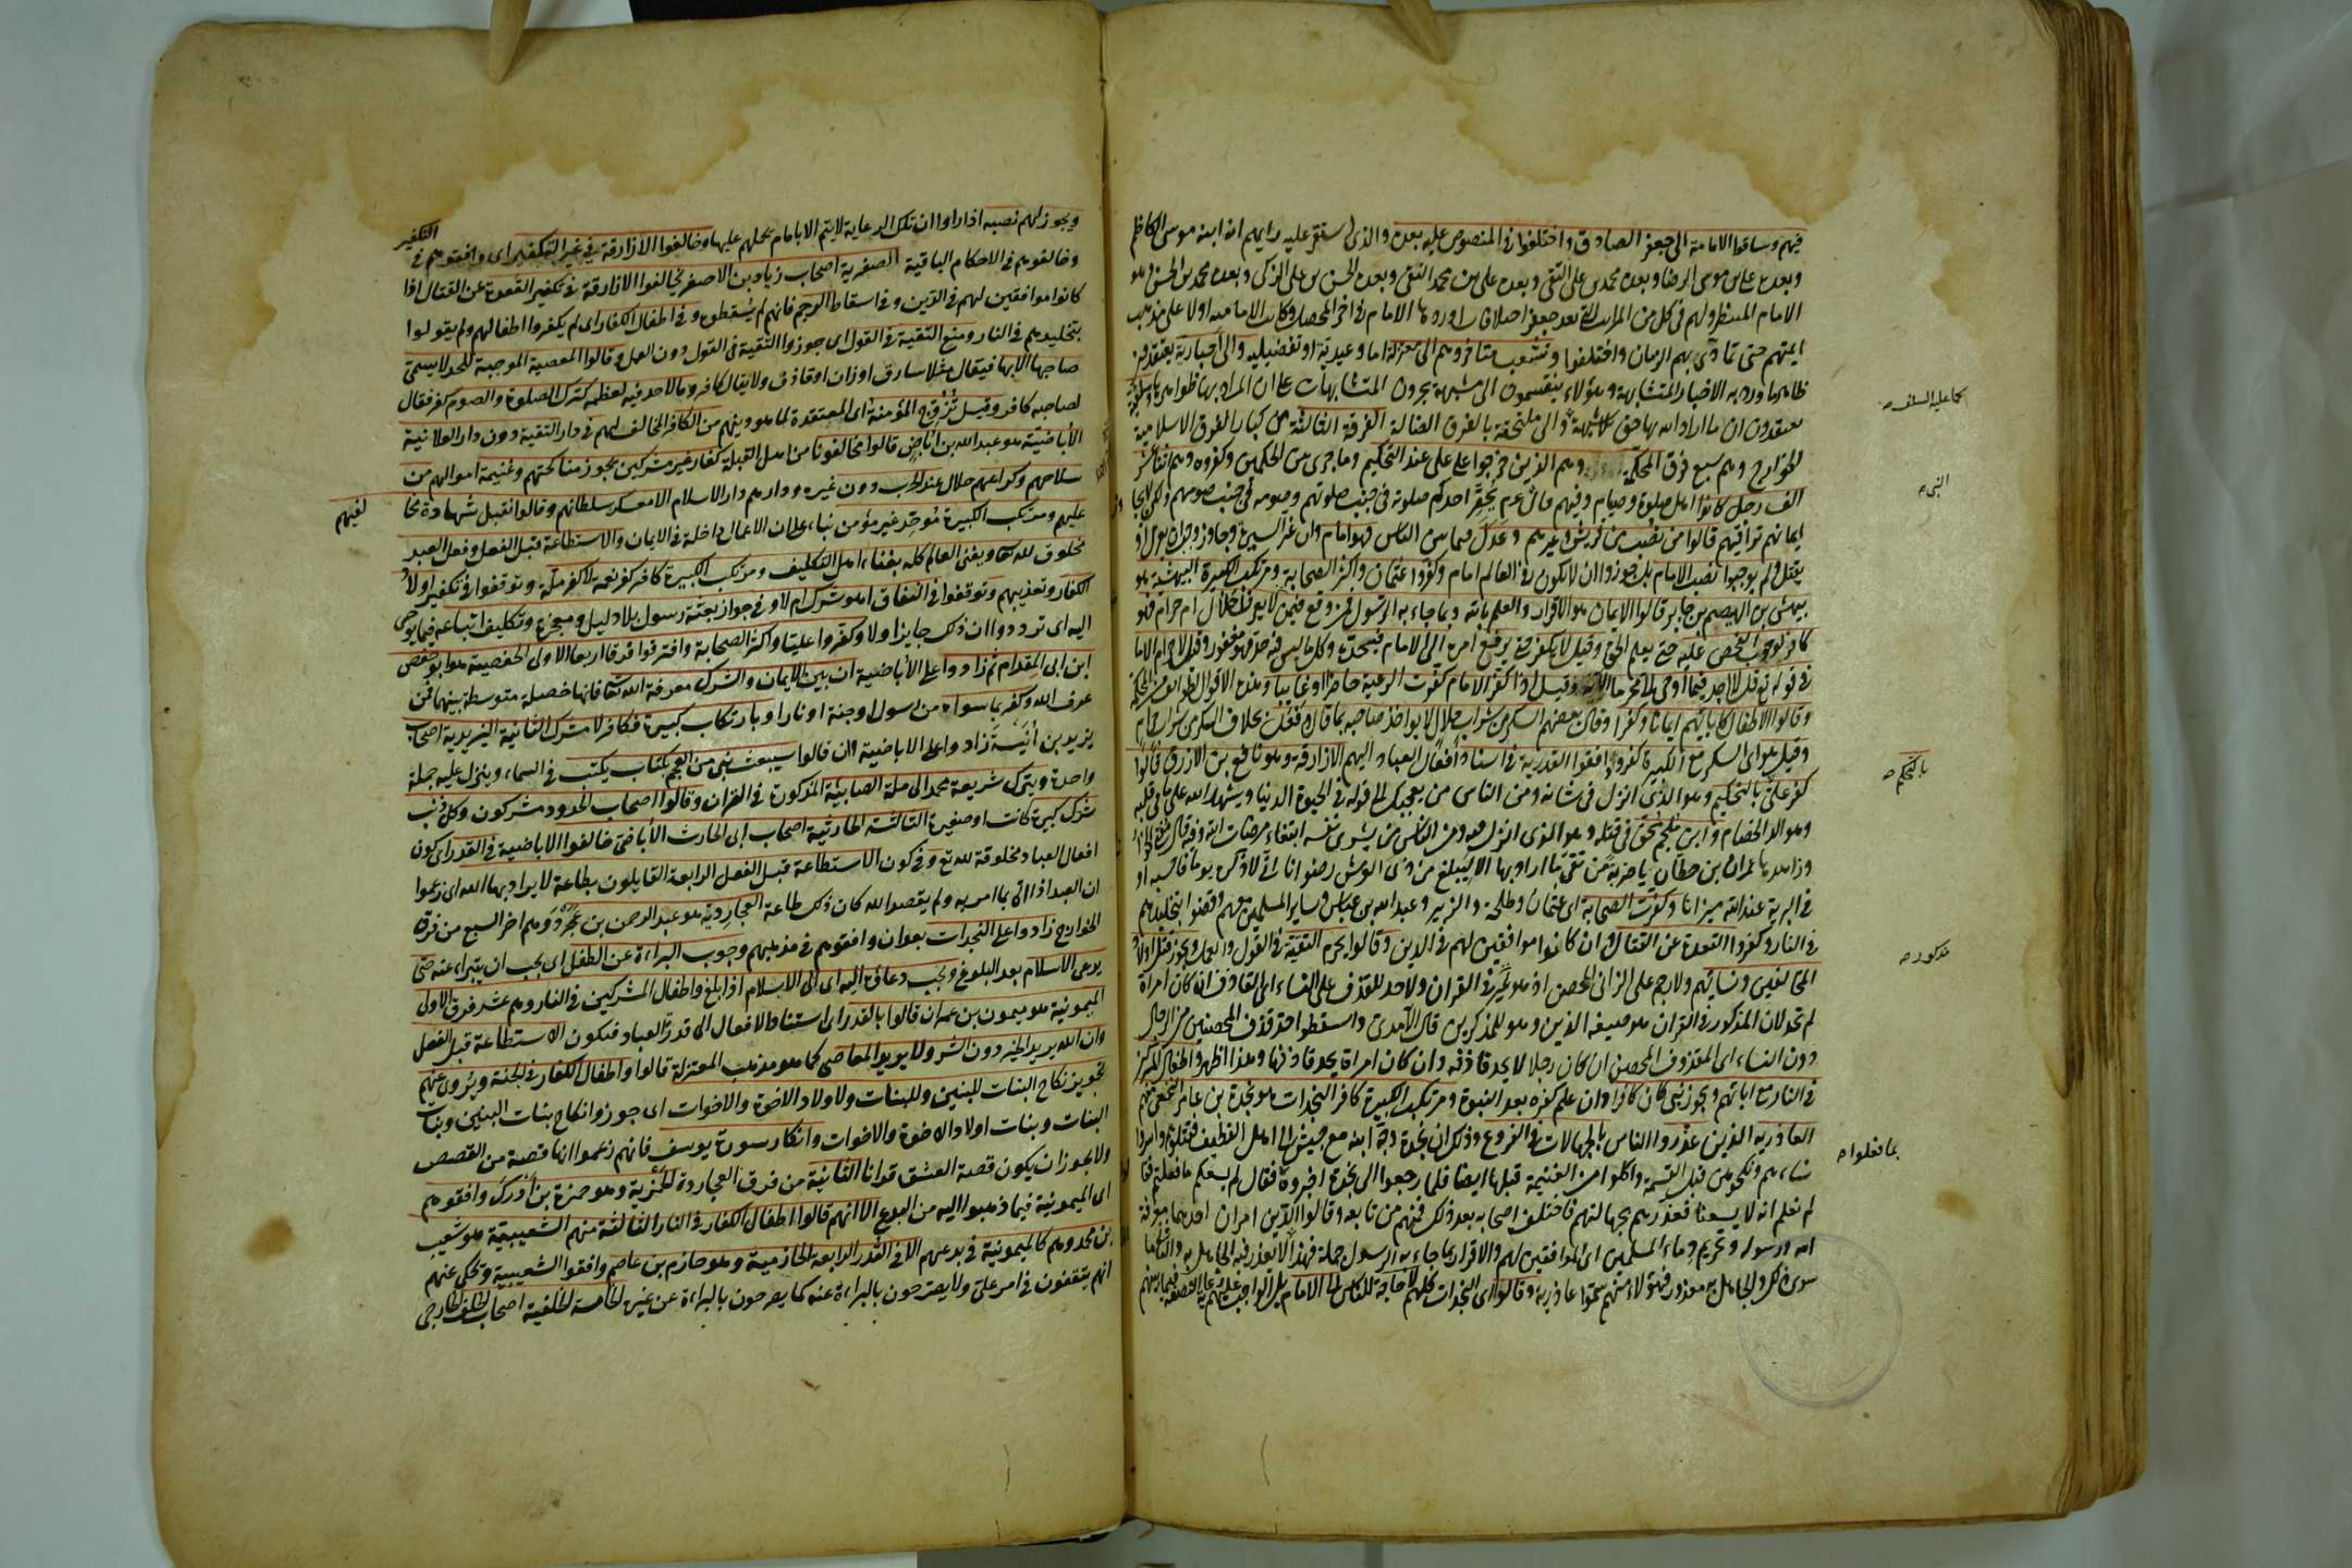 فيهم وساقوا الامامة الى جعفر الصادق واختلفوا فى المنصوص عليه بعده والذى استقر عليه رايهم انه ابنه موسى الكاظم
وبعده على بن موسى الرضا وبعده محمد بن على التقى وبعده على بن محمد النقى وبعده الحسن بن على الزكى وبعده محمد بن الحسن وهو
الامام المنتظر ولهم فى كل من المراتب التى بعد جعفر اختلافات اوردها الامام فى اخر المحصل وكانت الامامية اولا على مذهب
ايمتهم حتى تمادى بهم الزمان واختلفوا وتشعب متاخروهم الى معتزلة اما وعيدية او تفضيلية والى اخبارية يعتقدون
ظاهر ما ورد به الاخبار المتشابهة وهؤلاء ينقسمون الى مشبهة يجرون المتشابهات على ان المراد بها ظواهرها وسلفية
يعتقدون ان ما اراد الله بها حق بلا تشبيه والى ملتحقة بالفرق الضالة الفرقة الثالثة من كبار الفرق الاسلامية
كما عليه السلف
الخوارج وهم سبع فرق المحكمة وهم الذين خرجوا على على عند التحكيم وما جرى من الحكمين وكفروه وهم اثنا عشر
الف رجل كانوا اهل صلوة وصيام وفيهم قال عم يحقر احدكم صلوته فى جنب صلوتهم وصومه فى جنب صومهم ولكن لا يجاوز
النبى
ايمانهم تراقيهم قالوا من نصب من قريش وغيرهم وعدل فيما بين الناس فهو امام وان غير السيرة وجار وجب ان يعزل او
يقتل ولم يوجبوا نصب الامام بل جوزوا ان لا يكون فى العالم امام وكفروا عثمان واكثر الصحابة ومرتكب الكبيرة البيهسية هو
بيهس بن الهيصم بن جابر قالوا الايمان هو الاقرار والعلم بالله وبما جاء به الرسول فمن وقع فيما لا يعرف احلال ام حرام فهو
كافر لوجوب الفحص عليه حتى يعلم الحق وقيل لا يكفر حتى يرفع امره الى الامام فيحده وكل ما ليس فيه حد فهو مغفور وقيل لا حرام الا ما
فى قوله تع قل لا اجد فيما اوحى الى محرما الاية وقيل اذا كفر الامام كفرت الرعية حاضرا او غائبا
وقالوا الاطفال كابائهم ايمانا وكفرا وقال بعضهم السكر من شراب حلال لا يواخذ صاحبه بما قال وفعل بخلاف السكر من شراب حرام
وقيل هو اى السكر مع الكبيرة كفر ووافقوا القدرية فى اسناد افعال العباد اليهم الازارقة وهو نافع بن الازرق قالوا
كفر على بالتحكيم وهو الذى انزل فى شانه ومن الناس من يعجبك قوله فى الحيوة الدنيا ويشهد الله على ما فى قلبه
بالتحكيم
وهو الد الخصام وابن ملجم محق فى قتله وهو الذى انزل فيه ومن الناس من يشرى نفسه ابتغاء مرضات الله وفيه قال
وزاهدها عمران بن حطان يا ضربة من تقى ما اراد بها الا ليبلغ من ذى العرش رضوانا انى لاذكره يوما فاحسبه اوفى
البرية عند الله ميزانا وكفرت الصحابة اى عثمان وطلحة والزبير وعبد الله بن عباس وساير المسلمين معهم وقضوا بتخليدهم
فى النار وكفروا القعدة عن القتال وان كانوا موافقين لهم فى الدين وقالوا يحرم التقية فى القول والعمل ويجوز قتل اولاد
المخالفين ونسائهم ولا رجم على الزانى المحصن اذ هو غير مذكور فى القران ولا حد للقذف على النساء اى القاذف ان كان امراة
مذكور
لم تحد لان المذكور فى القران هو صيغة الذين وهو للمذكرين قال الآمدى واسقطوا حد قذف المحصنين من الرجال
دون النساء اى المقذوف المحصن ان كان رجلا لا يحد قاذفه وان كان امراة يحد قاذفها وهذا اظهر واطفال المشركين
فى النار مع ابائهم ويجوز نبى كان كافرا وان علم كفره بعد النبوة ومرتكب الكبيرة كافر النجدات هو نجدة بن عامر النخعى منهم
العاذرية الذين عذروا الناس بالجهالات فى الفروع وذلك ان نجدة وجه ابنه مع جيش الى اهل القطيف فقتلوهم واسروا
نساءهم ونكحوهن قبل القسمة واكلوا من الغنيمة قبلها ايضا فلما رجعوا الى نجدة اخبروه فقال لم يسعكم ما فعلتم فقالوا
بما فعلوا
لم نعلم انه لا يسعنا فعذرهم بجهالتهم فاختلف اصحابه بعد ذلك فمنهم من تابعه وقالوا الدين امران احدهما معرفة
الله ورسوله وتحريم دماء المسلمين اى الموافقين لهم والاقرار بما جاء به الرسول جملة فهذا لا يعذر فيه الجاهل به والثانى ما
سوى ذلك والجاهل به معذور فهؤلاء منهم سموا عاذرية وقالوا اى النجدات كلهم لا حاجة للناس الى الامام بل الواجب عليهم النصفة فيما بينهم
ويجوز لهم نصبه اذا راوا ان تلك الرعاية لا يتم الا بامام يحملهم عليها وخالفوا الازارقة فى غير التكفير اى وافقوهم فى التكفير
وخالفوهم فى الاحكام الباقية الصفرية اصحاب زياد بن الاصفر يخالفوا الازارقة فى تكفير القعدة عن القتال اذا
كانوا موافقين لهم فى الدين وفى اسقاط الرجم فانهم لم يسقطوه وفى اطفال الكفار اى لم يكفروا اطفالهم ولم يقولوا
بتخليدهم فى النار ومنع التقية فى القول اى جوزوا التقية فى القول دون العمل وقالوا المعصية الموجبة للحد لا يسمى
صاحبها الا بها فيقال مثلا سارق او زان او قاذف ولا يقال كافر وما لا حد فيه لعظمه كترك الصلوة والصوم كفر فيقال
لصاحبه كافر وقيل تزوج المؤمنة اى المعتقدة لما هو دينهم من الكافر المخالف لهم فى دار التقية دون دار العلانية
الاباضية هو عبد الله بن اباض قالوا مخالفونا من اهل القبلة كفار غير مشركين يجوز مناكحتهم وغنيمة اموالهم من
سلاحهم وكراعهم حلال عند الحرب دون غيره ودارهم دار الاسلام الا معسكر سلطانهم وقالوا تقبل شهادة مخا
لفيهم
عليهم ومرتكب الكبيرة موحد غير مؤمن بناء على ان الاعمال داخلة فى الايمان والاستطاعة قبل الفعل وفعل العبد
مخلوق لله تعا ويفنى العالم كله بفناء اهل التكليف ومرتكب الكبيرة كافر كفر نعمة لا كفر ملة وتوقفوا فى تكفير اولاد
الكفار وتعذيبهم وتوقفوا فى النفاق اهو شرك ام لا وفى جواز بعثة رسول بلا دليل ومعجزة وتكليف اتباعه فيما يوحى
اليه اى ترددوا ان ذلك جايز اولا وكفروا عليا واكثر الصحابة وافترقوا فرقا اربعا الاولى الحفصية هو ابو حفص
ابن ابى المقدام ثم زادوا على الاباضية ان بين الايمان والشرك معرفة الله تعا فانها خصلة متوسطة بينهما فمن
عرف الله وكفر بما سواه من رسول او جنة او نار او بارتكاب كبيرة فكافر لا مشرك الثانية اليزيدية اصحاب
يزيد بن انيسة زادوا على الاباضية ان قالوا سيبعث نبى من العجم بكتاب يكتب فى السماء وينزل عليه جملة
واحدة ويترك شريعة محمد الى ملة الصابئة المذكورة فى القران وقالوا اصحاب الحدود مشركون وكل ذنب
شرك كبيرة كانت او صغيرة الثالثة الحارثية اصحاب ابى الحارث الاباضى خالفوا الاباضية فى القدر اى كون
افعال العباد مخلوقة لله تع وفى كون الاستطاعة قبل الفعل الرابعة القايلون بطاعة لا يراد بها الله اى زعموا
ان العبد اذا اتى بما امر به ولم يقصد الله كان ذلك طاعة العجاردية هو عبد الرحمن بن عجرد وهم اخر السبع من فرق
الخوارج زادوا على النجدات بعد ان وافقوهم فى مذهبهم وجوب البراءة عن الطفل اى يجب ان يتبرا عنه حتى
يدعى الاسلام بعد البلوغ ويجب دعاؤه اليه اى الى الاسلام اذا بلغ واطفال المشركين فى النار وهم عشر فرق الاولى
الميمونية هو ميمون بن عمران قالوا بالقدر اى استناد الافعال الى قدر العباد فيكون الاستطاعة قبل الفعل
وان الله يريد الخير دون الشر ولا يريد المعاصى كما هو مذهب المعتزلة قالوا واطفال الكفار فى الجنة ويروى عنهم
تجويز نكاح البنات للبنين وللبنات ولاولاد الاخوة والاخوات اى جوزوا نكاح بنات البنين وبنات
البنات وبنات اولاد الاخوة والاخوات وانكار سورة يوسف فانهم زعموا انها قصة من القصص
ولا يجوز ان يكون قصة العشق قرانا الثانية من فرق العجاردة الحمزية وهو حمزة بن ادرك وافقوهم
اى الميمونية فيما ذهبوا اليه من البدع الا انهم قالوا اطفال الكفار فى النار الثالثة منهم الشعيبية هو شعيب
بن محمد وهم كالميمونية فى بدعهم الا فى القدر الرابعة الحازمية وهو حازم بن عاصم وافقوا الشعيبية ويحكى عنهم
انهم يتوقفون فى امر على ولا يصرحون بالبراءة عنه كما يصرحون بالبراءة عن غيره الخامسة الخلفية اصحاب خلف الخارجى